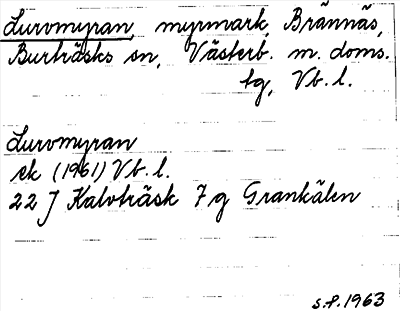 Lurvmyran, myrmark, Brännäs,
Burträsks sn, Västerb. m. doms.
tg, Vb. l.
Lurvmyran
ek (1961) Vb. l.
22 J Kalvträsk 7 g Grankälen
s.f. 1963